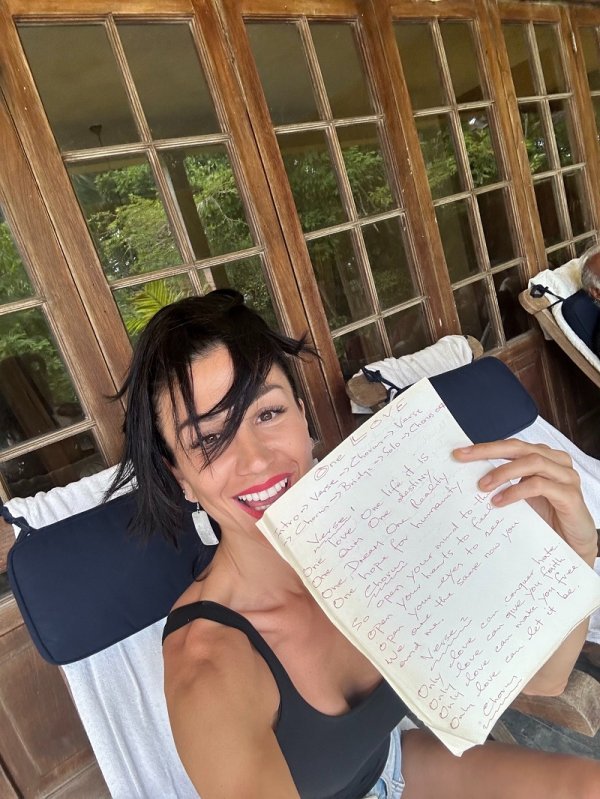 One Love
Intro → Verse → Chorus → Verse
→ Chorus → Bridge → Solo → Chorus out
Verse 1
One love One life it is
One aum One destiny
One Dream One Reality
One hope for humanity
Chorus
So open your mind to the
open your hearts to feel
open your eyes to see
We are the same now you
and me.
Verse 2
Only love can conquer hate
Only love can give you faith
Only love can make you free
Only love can let it be.
Chorus